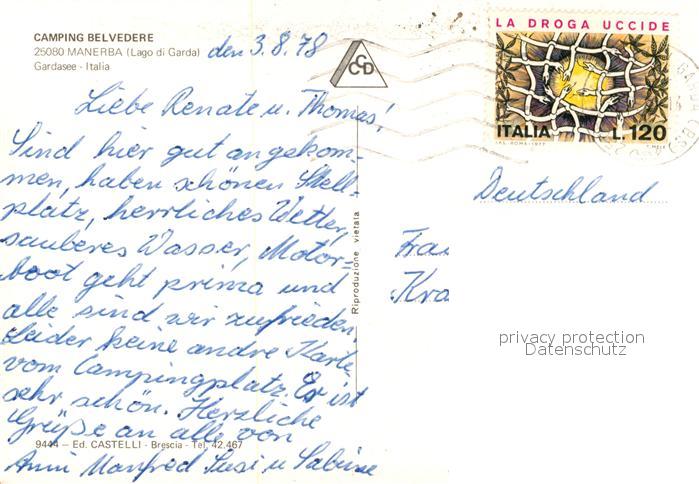 CAMPING BELVEDERE
25080 MANERBA (Lago di Garda)
Gardasee - Italia
den 3.8.78
Liebe Renate u. Thomas!
Sind hier gut angekom-
men, haben schönen Stell-
platz, herrliches Wetter,
sauberes Wasser, Motor-
boot geht prima und
alle sind wir zufrieden.
Leider keine andre Karte
vom Campingplatz. Er ist
sehr schön. Herzliche
Grüße an alle von
9444 – Ed. CASTELLI - Brescia - Tel. 42.467
Anni Manfred Susi u Sabine
CCD
Riproduzione vietata
LA DROGA UCCIDE
ITALIA L.120
I.P.S.-ROMA-1977
Deutschland
Fra
Kra
privacy protection
Datenschutz